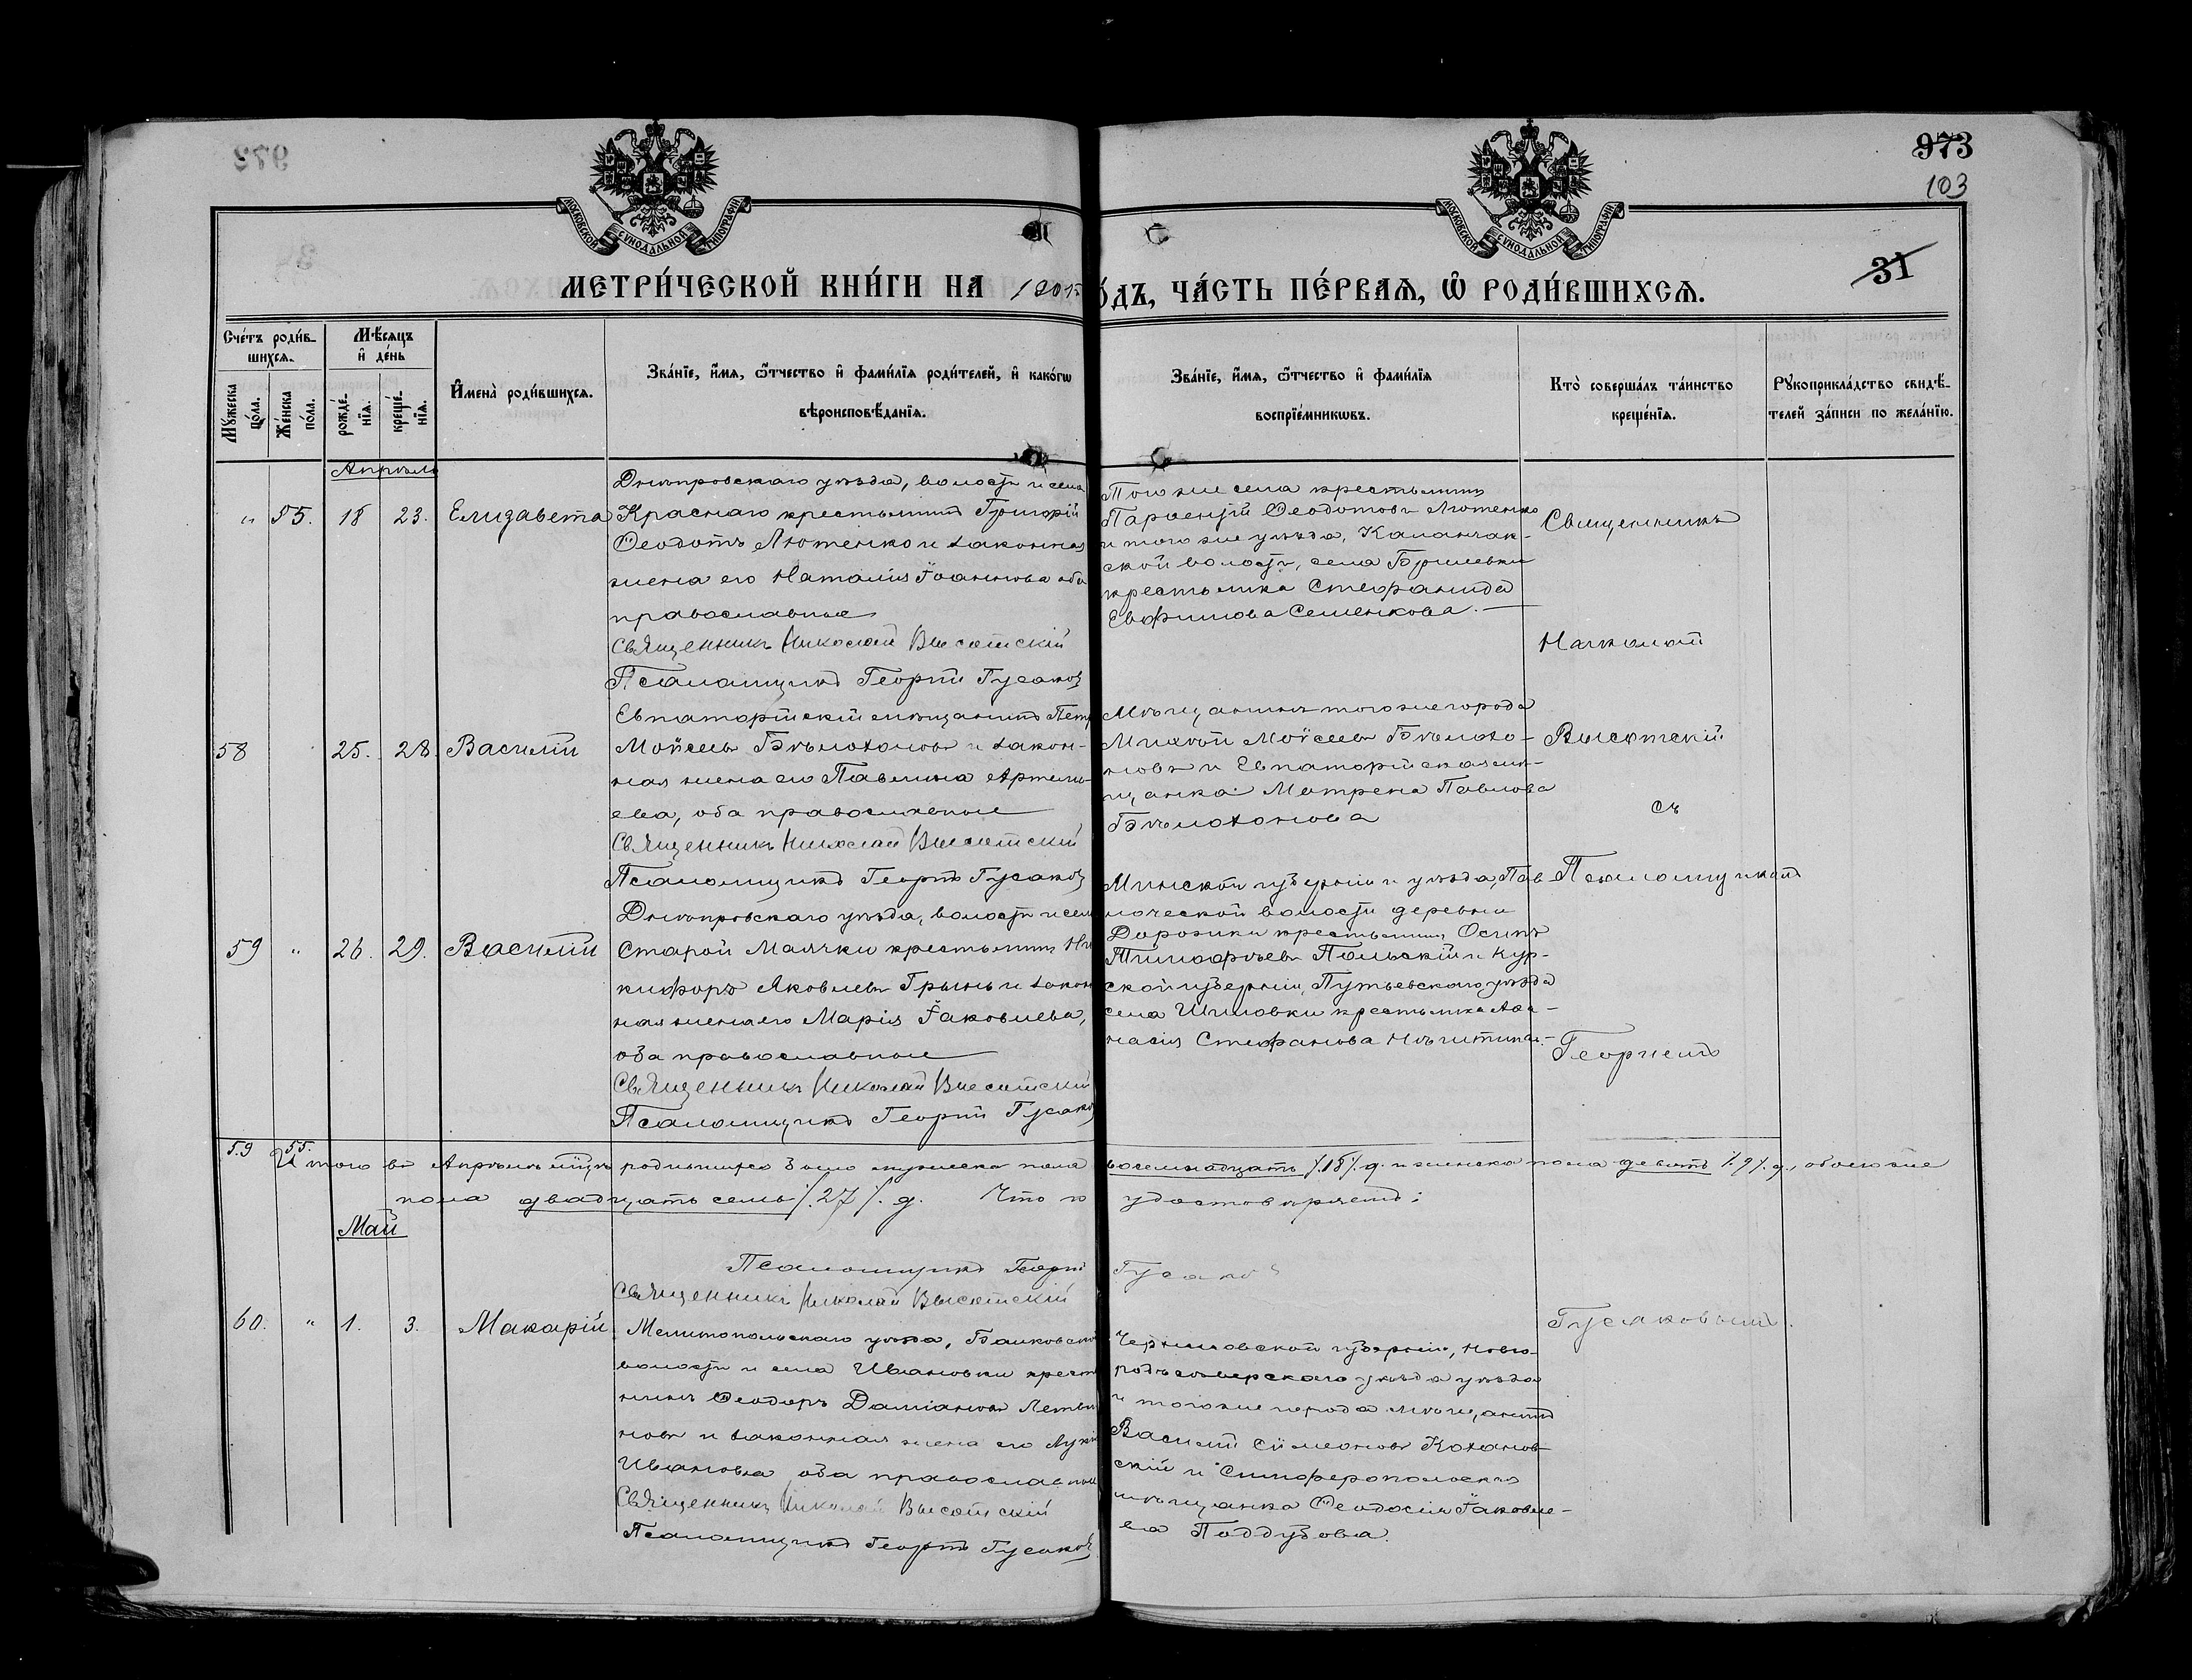 973
103
31
МОСКОВСКОЙ СѴНОДАЛЬНОЙ ТИПОГРАФІИ
МОСКОВСКОЙ СѴНОДАЛЬНОЙ ТИПОГРАФІИ
МЕТРИ́ЧЕСКОЙ КНИ́ГИ НА
О́ДЪ, ЧА́СТЬ ПЕ́РВАѦ, Ѽ РОДИ́ВШИХСѦ.
Сче́тъ роди́в-
шихсѧ.
Мꙋ́жеска по́ла.
Же́нска по́ла.
Мѣ́сѧцъ
и҆ де́нь
рожде́-
нїѧ.
креще́-
нїѧ.
И҆мена̀ роди́вшихсѧ.
Зва́нїе, и҆́мѧ, ѻ҆́тчество и҆ фами́лїѧ роди́телей, и҆ како́гѡ
вѣроисповѣ́данїѧ.
Зва́нїе, и҆́мѧ, ѻ҆́тчество и҆ фами́лїѧ
воспрїе́мникѡвъ.
Кто̀ соверша́лъ та́инство
креще́нїѧ.
Рꙋкоприкла́дство свидѣ́-
телей за́писи по жела́нїю.
Апрѣль
" 55. 18 23. Елизавета
Днѣпровскаго уѣзда, волости и села
Краснаго крестьянинъ Григорій
Ѳеодотъ Лютенко и законная
жена его Наталія Іоаннова оба
православные
Священникъ Николай Высотскій
Псаломщикъ Георгій Гусаковъ
Того же села крестьянинъ
Парѳеній Ѳеодотовъ Лютенко
и того же уѣзда, Каланчак-
ской волости, села Брилевки
крестьянка Стефанида
Евфимова Семенкова.
Священникъ
Николай
Высотскій
съ
Псаломщикомъ
Георгіемъ
Гусаковымъ.
58 25. 28. Василій
Евпаторійскій мѣщанинъ Петръ
Моѵсеевъ Бѣлохоновъ и закон-
ная жена его Павлина Артемь-
ева, оба православные
Священникъ Николай Высотскій
Псаломщикъ Георгій Гусаковъ
Мѣщанинъ того же города
Михаилъ Моѵсеевъ Бѣлохо-
новъ и Евпаторійская мѣ-
щанка Матрена Павлова
Бѣлохонова
59 " 26. 29. Василій
Днѣпровскаго уѣзда, волости и села
Старой Маячки крестьянинъ Ни
кифоръ Яковлевъ Грынь и закон
ная жена его Марія Іаковлева,
оба православные
Священникъ Николай Высотскій
Псаломщикъ Георгій Гусаковъ
Минской губерніи и уѣзда,
волости деревни
крестьянинъ Осипъ
Тимофѣевъ Польскій и Кур-
ской губерніи, Путьевскаго уѣзда
села Шиловки крестьянка Ана-
Стефанова
59 55.
Итого въ Апрѣлѣ мцѣ родившихся было мужеска пола восемнадцать /.18/. д. и женска пола девять /.9/. д., обоего же
пола двадцать семь /.27/. д. Что и удостовѣряемъ:
Май
Псаломщикъ Георгій Гусаковъ
Священникъ Николай Высотскій
60. " 1. 3. Макарій
Мелитопольскаго уѣзда, Балковской
волости и села Ивановки кресть
нинъ Ѳеодоръ Даміановъ
новъ и законная жена его
Ивановна оба православные
Священникъ Николай Высотскій
Псаломщикъ Георгій Гусаковъ
Черниговской губерніи, Ново-
родъ сѣверскаго уѣзда уѣзда
и того же города мѣщанинъ
Василій Сѵмеоновъ Коханов-
скій и Симферопольская
мѣщанка Ѳеодосія Іаковле-
ва Поддубова.